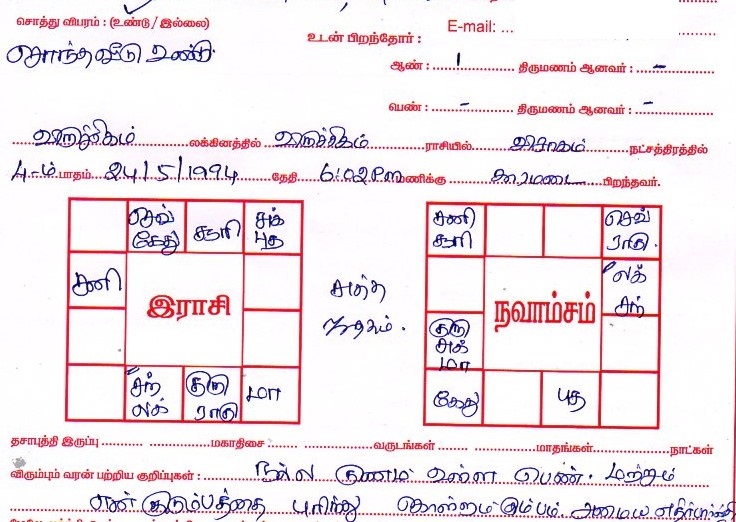 சொத்து விபரம் : (உண்டு / இல்லை)
E-mail: ...
உடன் பிறந்தோர் :
சொந்த வீடு உண்டு
ஆண் : 1 திருமணம் ஆனவர் : -
பெண் : - திருமணம் ஆனவர் : -
விருச்சிகம் லக்கினத்தில் விருச்சிகம் ராசியில் விசாகம் நட்சத்திரத்தில்
4-ம் பாதம் 24/5/1994 தேதி 6:02 Pm மணிக்கு காரமடை பிறந்தவர்.
செவ் கேது
சூரி
சுக் புத
சனி
இராசி
சந் லக்
குரு ராகு
மா
சுத்த
ஜாதகம்.
சனி சூரி
செவ் ராகு.
லக் சந்
நவாம்சம்
குரு சுக் மா
கேது
புத
தசாபுத்தி இருப்பு மகாதிசை வருடங்கள் மாதங்கள் நாட்கள்
விரும்பும் வரன் பற்றிய குறிப்புகள் : நல்ல குணம் உள்ள பெண். மற்றும்
என் குடும்பத்தை புரிந்து கொள்ளும்